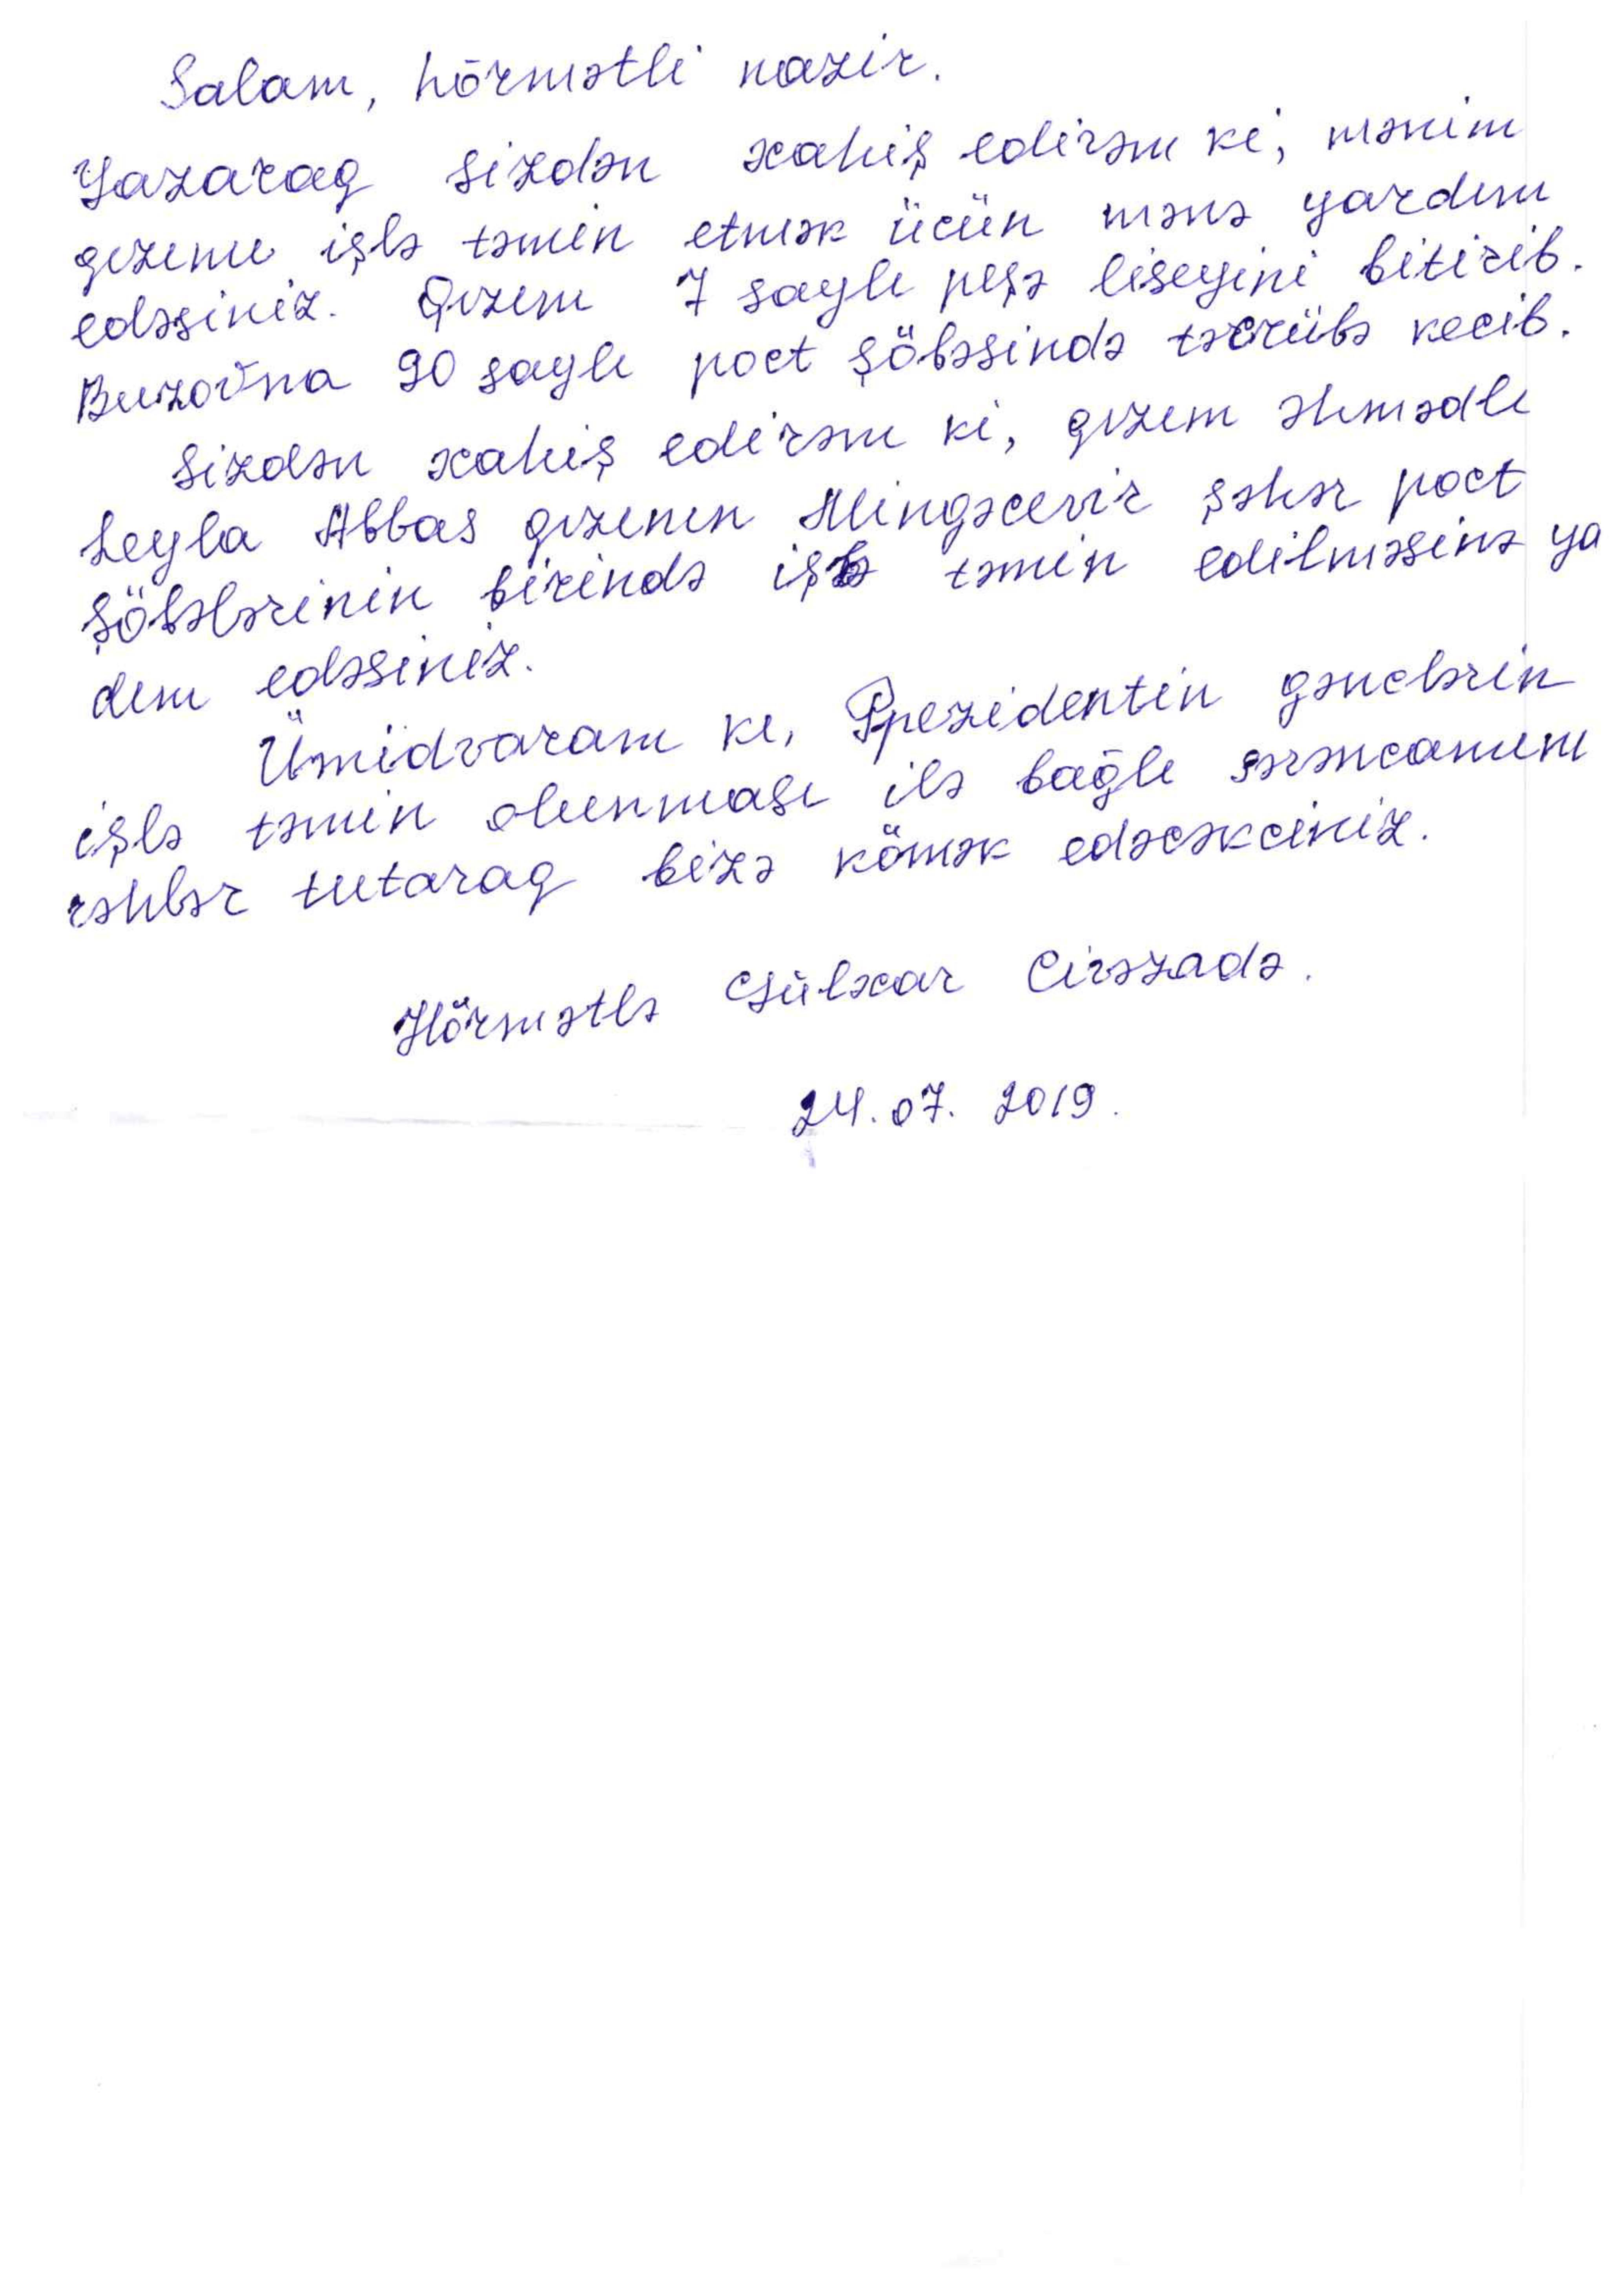 Salam, hörmətli nazir.
Yazaraq sizdən xahiş edirəm ki, mənim
qızımı işlə təmin etmək ücün mənə yardım
edəsiniz. Qızım 7 saylı peşə liseyini bitirib.
Buzovna 90 saylı poct şöbəsində təcrübə kecib.
Sizdən xahiş edirəm ki, qızım Əhmədli
Leyla Abbas qızının Mingəcevir şəhər poct
şöbələrinin birində işlə təmin edilməsinə ya
dım edəsiniz.
Ümidvaram ki, Ppezidentin gənclərin
işlə təmin olunması ilə bağlı sərəncamını
rəhbər tutaraq bizə kömək edəcəkciniz.
Hörmətlə Gülxar Cirəzadə.
24.07.2019.